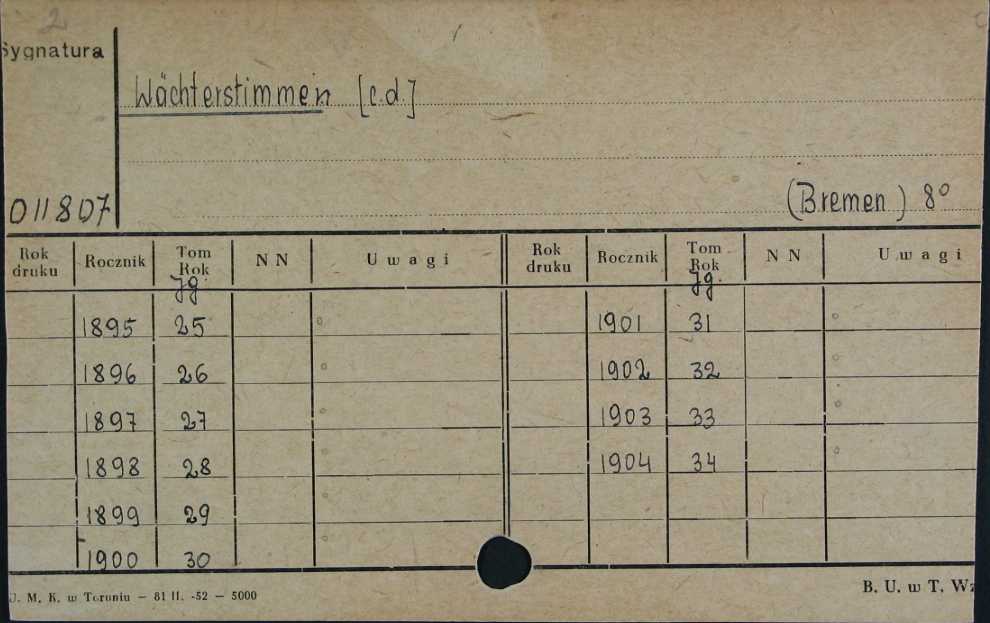 2
Sygnatura
Wächterstimmen [c.d.]
011807
(Bremen) 8°
Rok druku Rocznik Tom Rok NN Uwagi Rok druku Rocznik Tom Rok NN Uwagi
Jg. Jg.
1895 25 1901 31
1896 26 1902 32
1897 27 1903 33
1898 28 1904 34
1899 29
1900 30
U. M. K. w Toruniu — 81 II. -52 — 5000
B. U. w T.